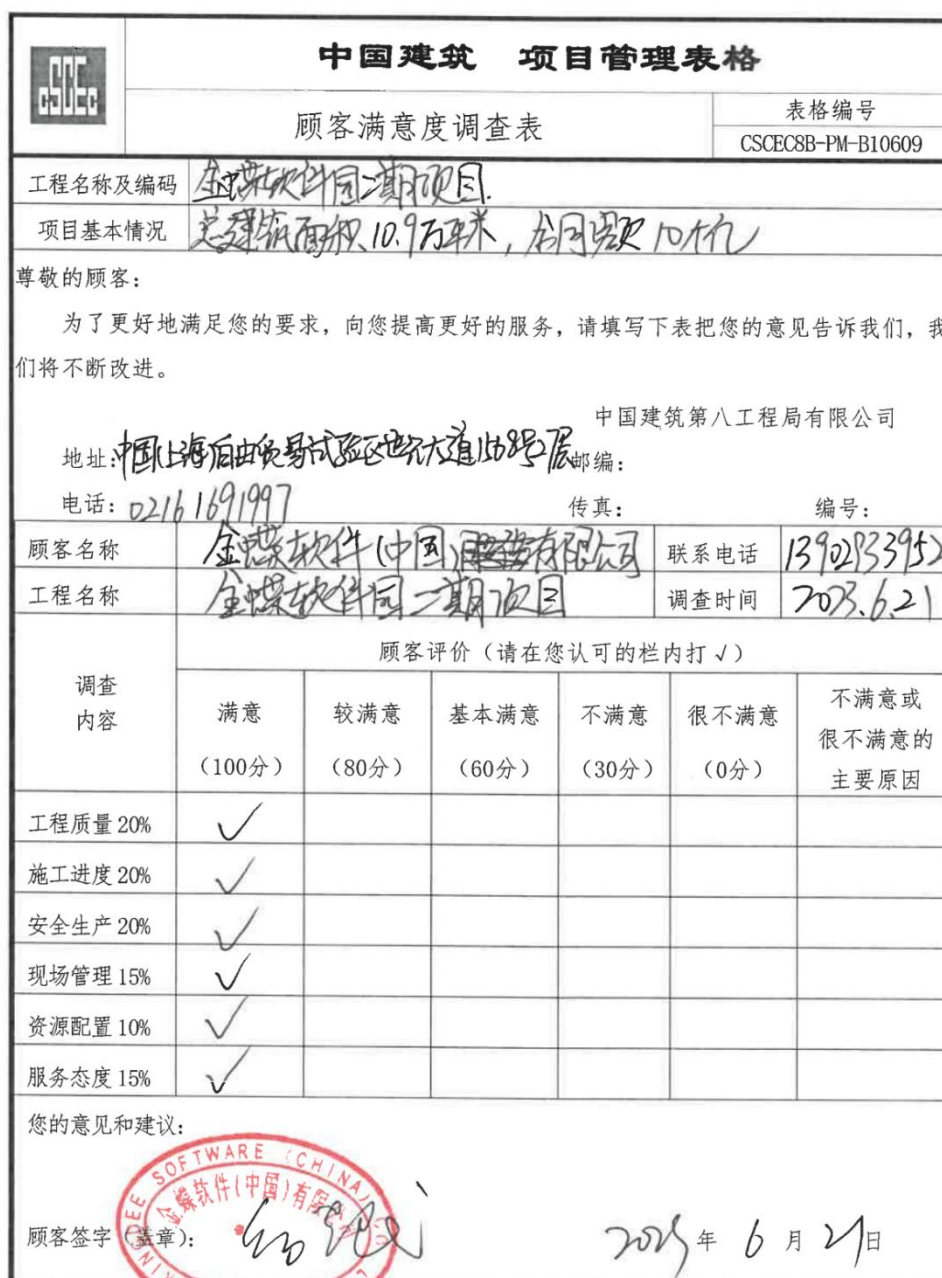 CSCEC
中国建筑 项目管理表格
顾客满意度调查表
表格编号
CSCEC8B-PM-B10609
工程名称及编码 金蝶软件园二期项目.
项目基本情况 总建筑面积10.9万平米，合同额 10个亿
尊敬的顾客：
为了更好地满足您的要求，向您提高更好的服务，请填写下表把您的意见告诉我们，我
们将不断改进。
中国建筑第八工程局有限公司
地址：中国(上海)自由贸易试验区世纪大道1568号27层 邮编：
电话：02161691997 传真： 编号：
顾客名称 金蝶软件(中国)有限公司 联系电话 13902933952
工程名称 金蝶软件园二期项目 调查时间 2023.6.21
调查
内容
顾客评价（请在您认可的栏内打√）
满意
（100分）
较满意
（80分）
基本满意
（60分）
不满意
（30分）
很不满意
（0分）
不满意或
很不满意的
主要原因
工程质量20% ✓
施工进度20% ✓
安全生产20% ✓
现场管理15% ✓
资源配置10% ✓
服务态度15% ✓
您的意见和建议：
KINGDEE SOFTWARE (CHINA) CO
金蝶软件(中国)有限公司
顾客签字（盖章）：
年 6 月 21 日